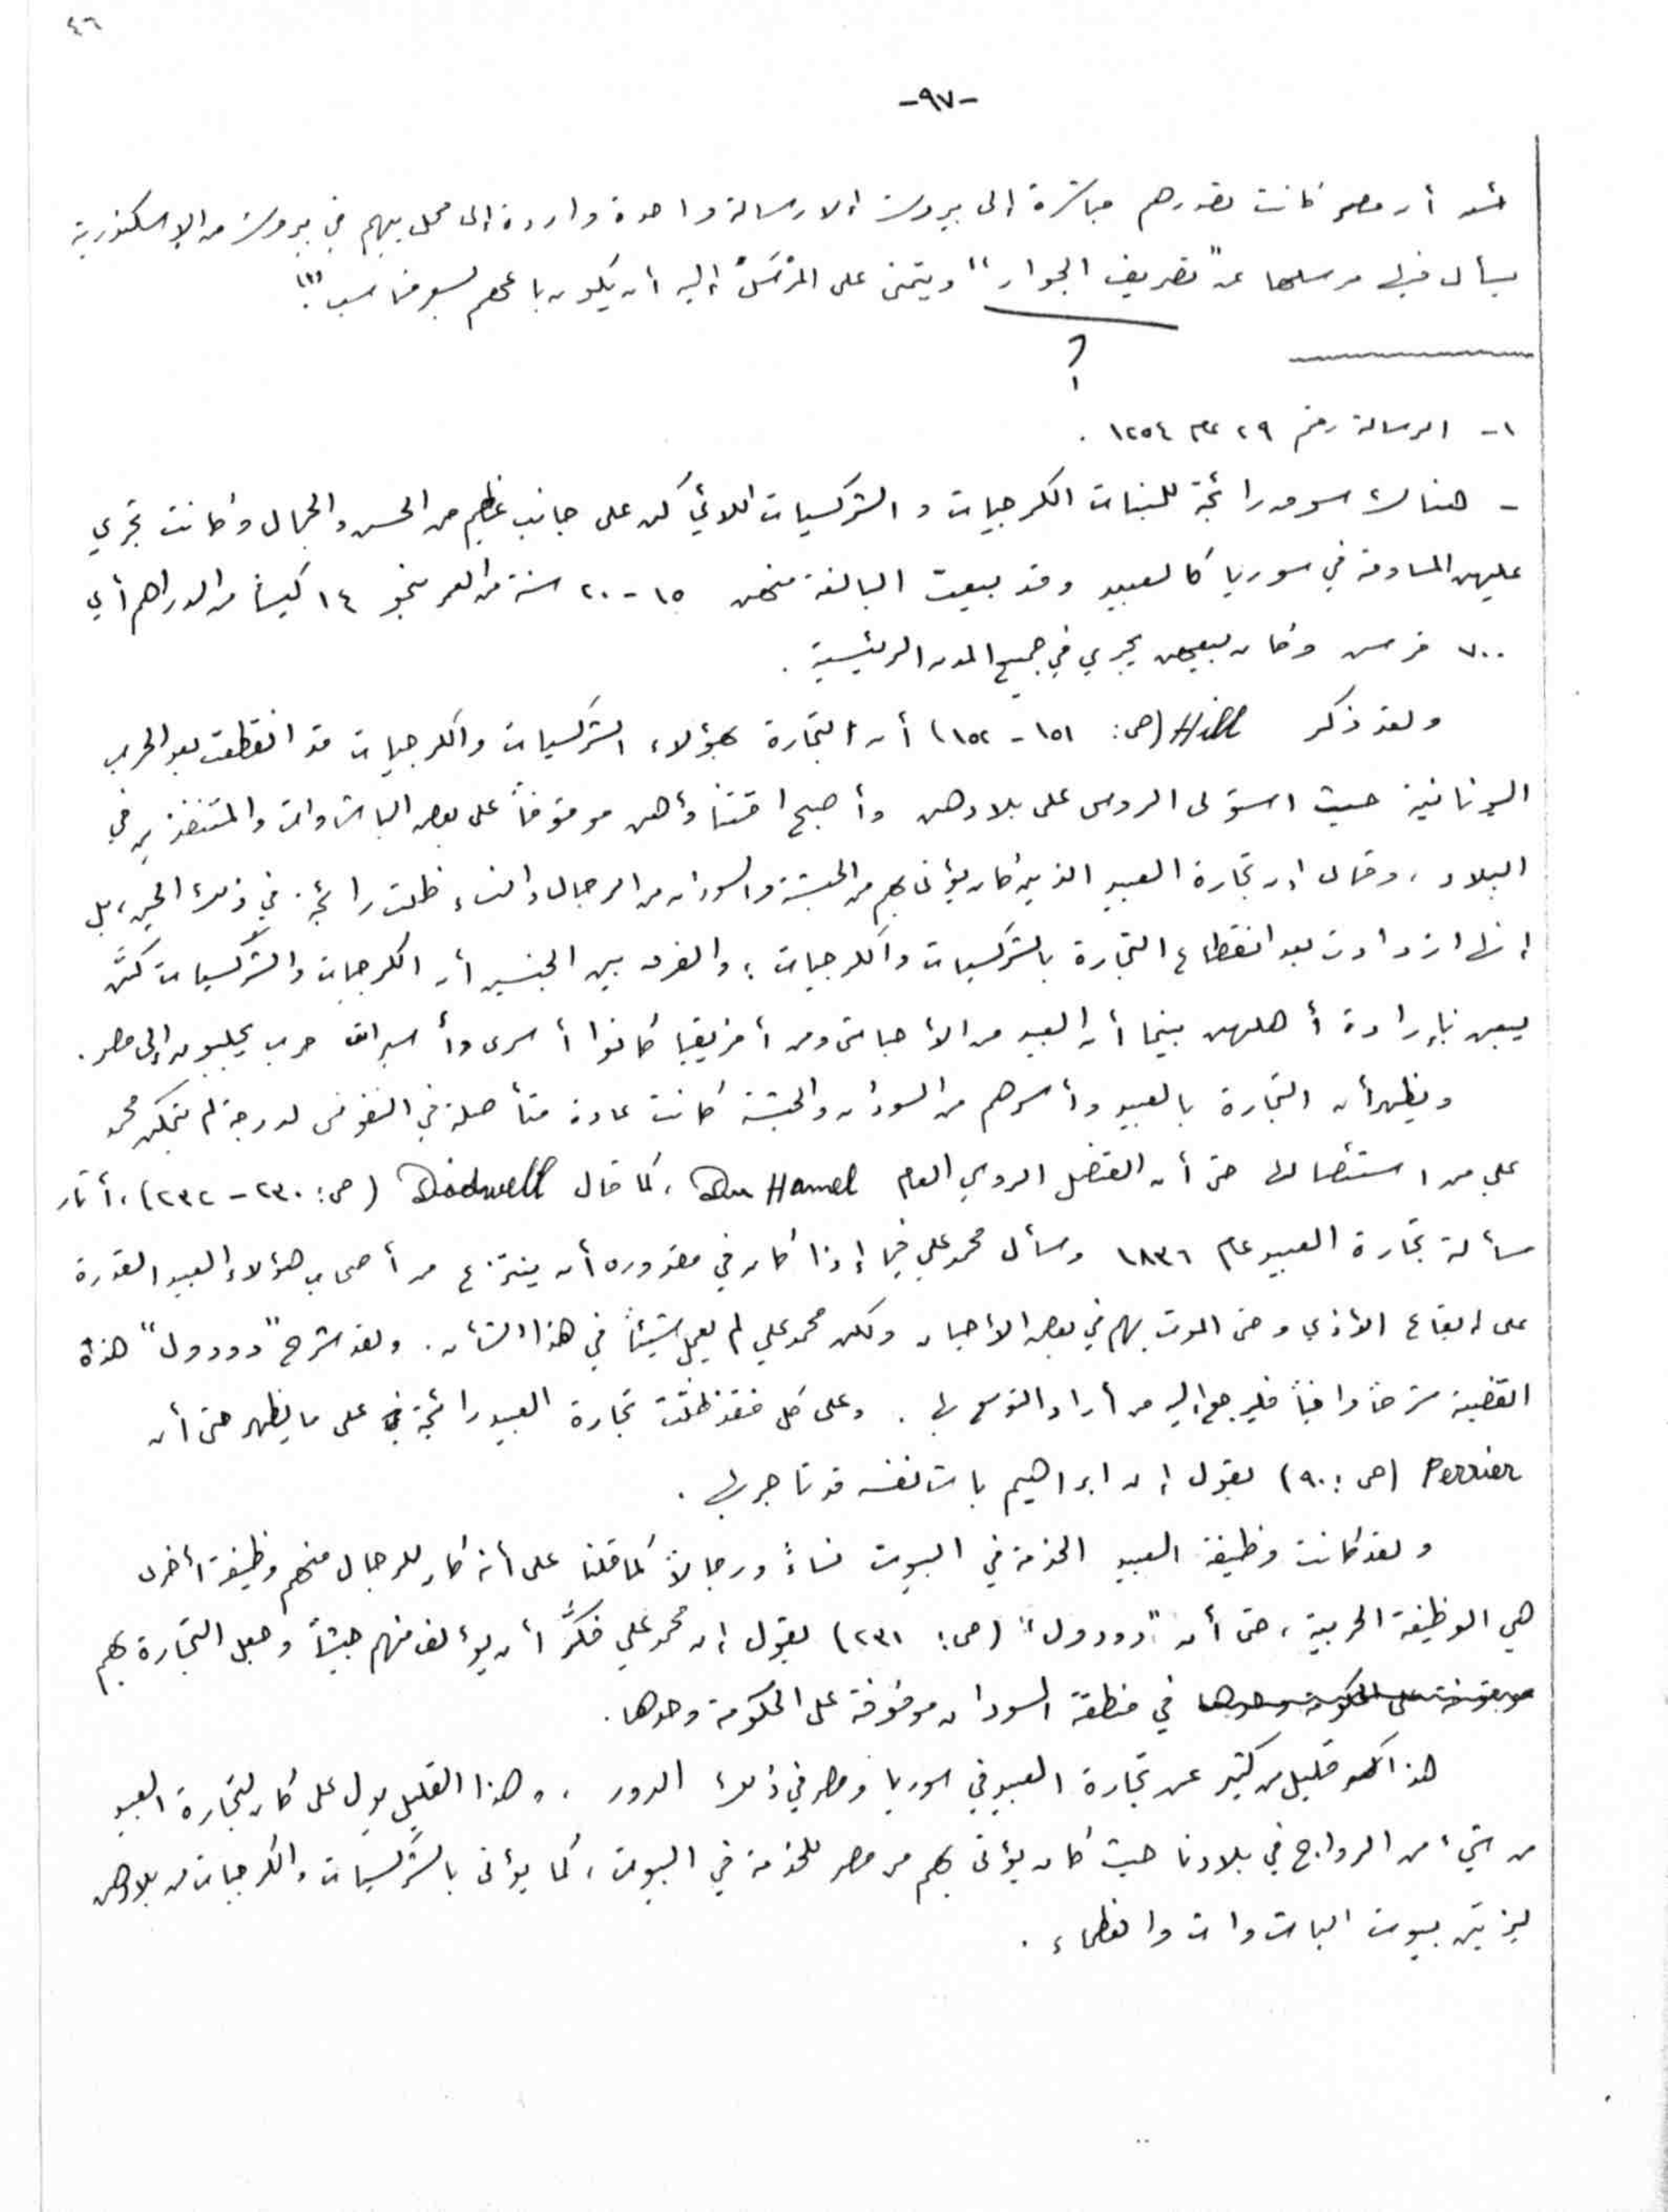 ٤٦
-٩٧-
أن مصر كانت تصدرهم مباشرة إلى بيروت إلا رسالة واحدة واردة إلى محل بيهم في بيروت من الإسكندرية
يسأل فيها مرسلها عن "تصريف الجوار" ويتمنى على المُرْسَل إليه أن يكون باعهم بسعر مناسب"(١).
؟
١- الرسالة رقم ٢٩ عام ١٢٥٤ .
- هناك سوق رائجة للبنات الكرجيات و الشركسيات اللائي كن على جانب عظيم من الحسن والجمال وكانت تجري
عليهن المساومة في سوريا كالعبيد وقد بيعت البالغة منهن ١٥-٢٠ سنة من العمر بنحو ١٤ كيساً من الدراهم أي
٧٠٠ قرش وكان بيعهن يجري في جميع المدن الرئيسية .
ولقد ذكر Hill (ص: ١٥١-١٥٢) أن التجارة بهؤلاء الشركسيات والكرجيات قد انقطعت بعد الحرب
اليونانية حيث استولى الروس على بلادهن وأصبح اقتناؤهن موقوفاً على بعض الباشاوات والمتنفذين في
البلاد ، وقال إن تجارة العبيد الذين كان يؤتى بهم من الحبشة والسودان من الرجال والنساء ظلت رائجة في ذلك الحين ، بل
إنها ازدادت بعد انقطاع التجارة بالشركسيات والكرجيات ؛ والفرق بين الجنسين أن الكرجيات والشركسيات كنَّ
يبعن بإرادة أهلهن بينما أن العبيد من الأحباش ومن أفريقيا كانوا أسرى وأسيرات حرب يجلبون إلى مصر .
ويظهر أن التجارة بالعبيد وأسرهم من السودان والحبشة كانت عادة متأصلة في النفوس لدرجة لم يتمكن محمد
علي من استئصالها حتى أن القنصل الروسي العام Du Hamel ، كما قال Dodwell (ص: ٢٣٠-٢٣٢) ، أثار
مسألة تجارة العبيد عام ١٨٣٦ وسأل محمد علي فيما إذا كان في مقدوره أن ينتزع من أصحاب هؤلاء العبيد القدرة
على إيقاع الأذى وحتى الموت بهم في بعض الأحيان ولكن محمد علي لم يعمل شيئاً في هذا الشأن . ولقد شرح "دودول" هذه
القضية شرحاً وافياً فليرجع إليه من أراد التوسع بها . وعلى كل فقد ظلَّت تجارة العبيد رائجة على ما يظهر حتى أن
Perrier (ص: ٩٠) يقول إن ابراهيم باشا نفسه قد تاجر بها .
ولقد كانت وظيفة العبيد الخدمة في البيوت نساءً ورجالاً كما قلنا على أنه كان للرجال منهم وظيفة أخرى
هي الوظيفة الحربية ، حتى أن "دودول" (ص: ٢٣١) يقول إن محمد علي فكَّر أن يؤلف منهم جيشاً وجعل التجارة بهم
موقوفة على الحكومة وحدها في منطقة السودان موقوفة على الحكومة وحدها .
هذا قليل من كثير عن تجارة العبيد في سوريا ومصر في ذلك الدور ، وهذا القليل يدل على كان لتجارة العبيد
من شيء من الرواج في بلادنا حيث كان يؤتى بهم من مصر للخدمة في البيوت ، كما يؤتى بالشركسيات والكرجيات من بلادهن
ليزيّن بيوت الباشاوات والعظماء .